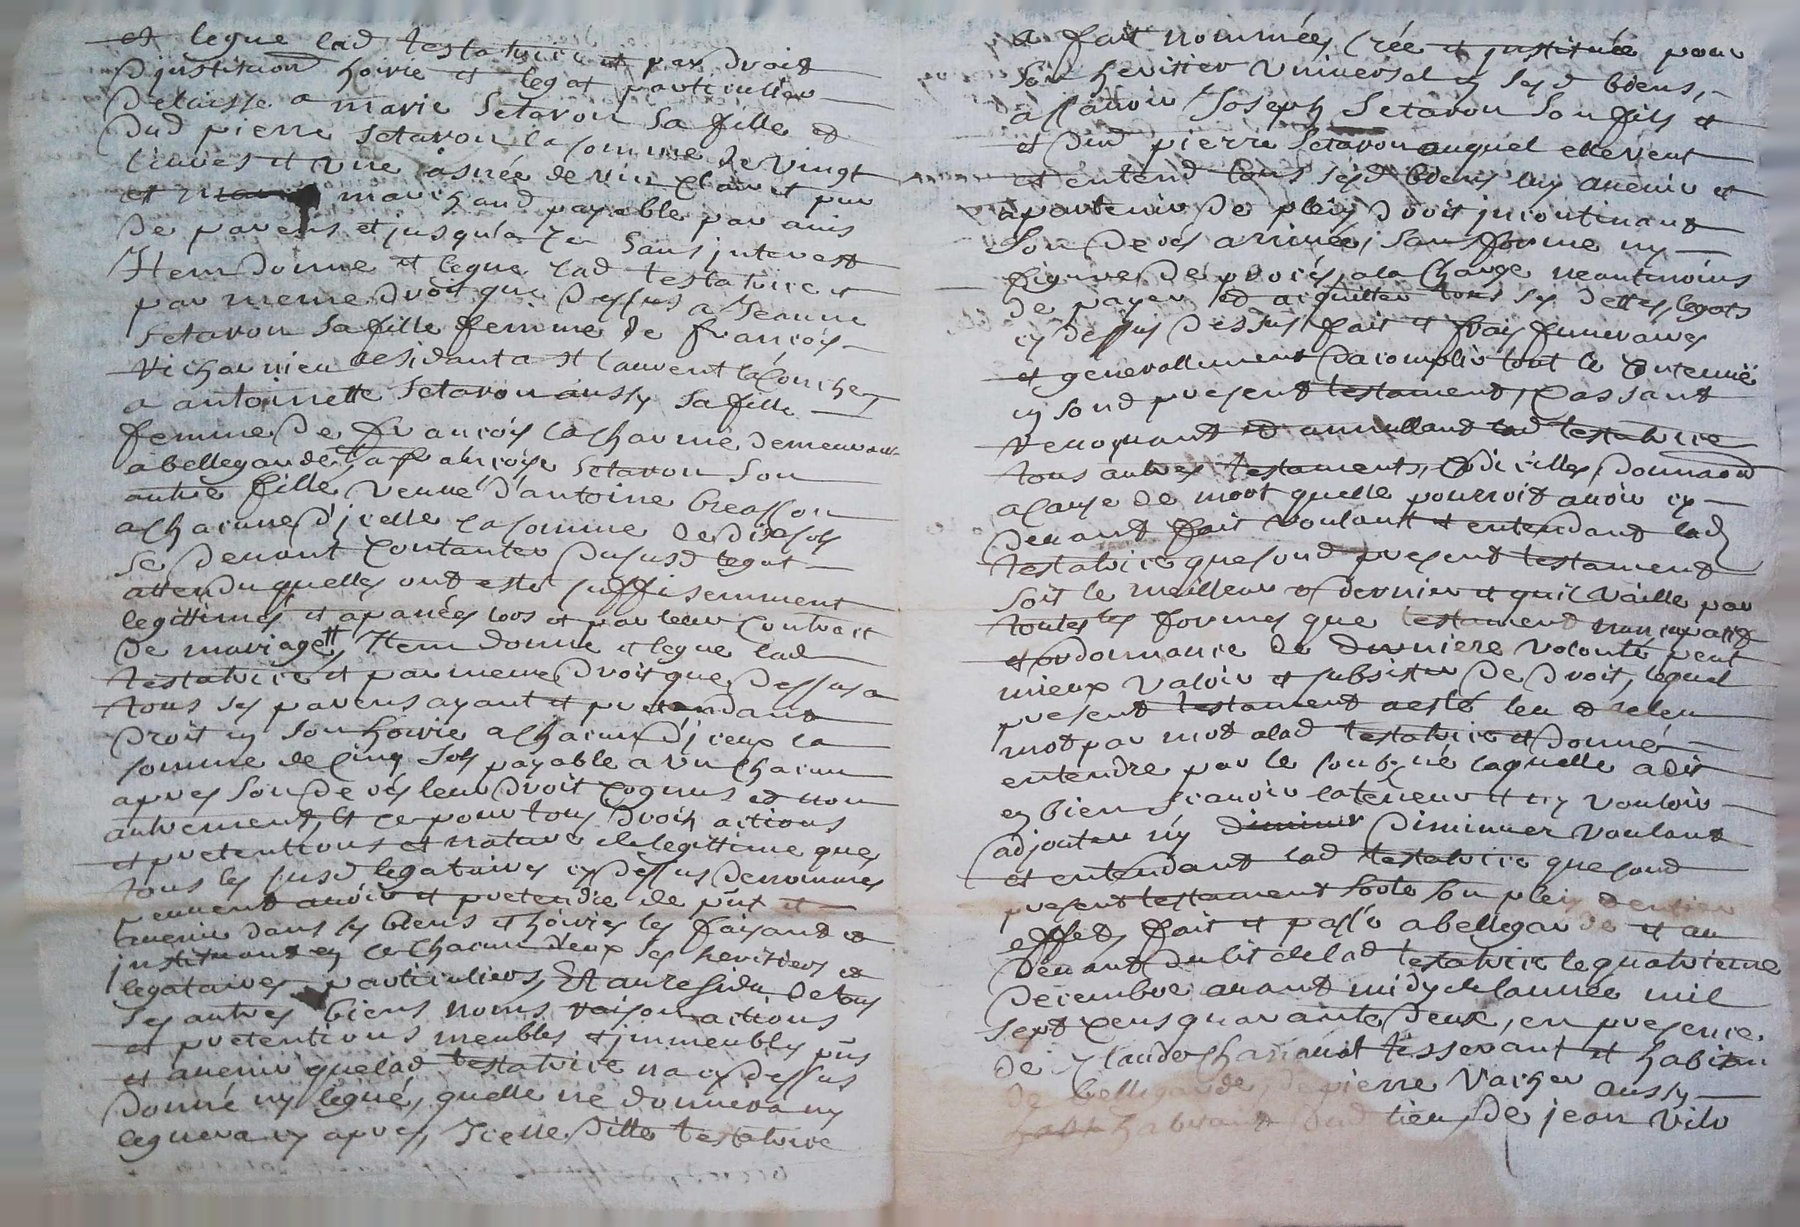 et legue lad testatrice et par droit
d'justituon hoirie et legat particulier
delaisse a marie Setavon sa fille et
dud pierre Setavon la somme de vingt
livres et une asnée de vin clair et pur
et marchand payable par avis
de parens et jusqu'a ce sans jnterest
Item donne et legue lad testatrice et
par meme droit que dessus a Jeanne
Setavon sa fille femme de françois
Vicharnieu residant a st laurent la Conche,
a antoinette Setavon aussy sa fille
femme de françois lacharme demeurant
a bellegarde, a françoise Setavon son
autre fille, veuve d'antoine breasson
a chacune d'jcelle la somme de dix sols
se devant contanter du susd legat
attendu quelles ont esté suffisemment
legittimés et apanées lors et par leur contrait
de mariage, Item donne et legue lad
testatrice et par meme droit que dessus a
tous ses parens ayant et pretendant
droit en son hoirie a chacun d'jceux la
somme de cinq sols payable a un chacun
apres son decés leur droit cognus et non
autrement, et ce pour tous droits actions
et pretentions et nature de legittime que
tous les susd legataires cy dessus denommés
peuvent avoir et pretendre de pnt et
lavenir dans ses biens et hoiries les faisant et
jnstituant en ce chacun deux ses heritiers et
legataires particuliers, Et au residu de tous
ses autres biens noms raison actions
et pretentions meubles et jmmeubles pns
et avenir que lad testatrice na cy dessus
donné ny legué, quelle ne donnera ny
leguera cy apres, Jcelle ditte testatrice
a fait nommée, crée et justituée pour
son heritier universel en sesd biens,
a sçavoir Joseph Setavon son fils et
et dud pierre Setavon auquel elle veut
et entend tous sesd biens luy avenir et
apartenir de plein droit jncontinant
son decés arrivée, sans forme ny
figure de procés, a la charge neantmoins
de payer et acquitter tous ses dettes, legats
cy dessus dessus fait et frais funeraires
et generallement dacomplir tout le contenue
en sond present testament, Cassant
revoquant et annullant lad testatrice
tous autres testaments, codicilles, donnaon
a cause de mort quelle pourroit avoir cy
devant fait voulant et entendant lad
testatrice que sond present testament
soit le meilleur et dernier et quil vaille par
toutes les formes que testament nuncupatif
et ordonnance de derniere volonté peut
mieux valoir et subsister de droit, lequel
present testament a esté leu et releu
mot par mot a lad testatrice et donné
entendre par le soubsné laquelle a dit
en bien scavoir la teneur et ny vouloir
adjouter ny diminuer diminuer voulant
et entendant lad testatrice que sond
present testament sorte son plein et entier
effet, fait et passé a bellegarde et au
devant du lit de lad testatrice le quatrieme
decembre avant midy de lannée mil
sept cens quarante deux, en presence
de Claude tisserant et habitan
de bellegarde, de pierre Vacher aussy
habitant dud lieu, de jean